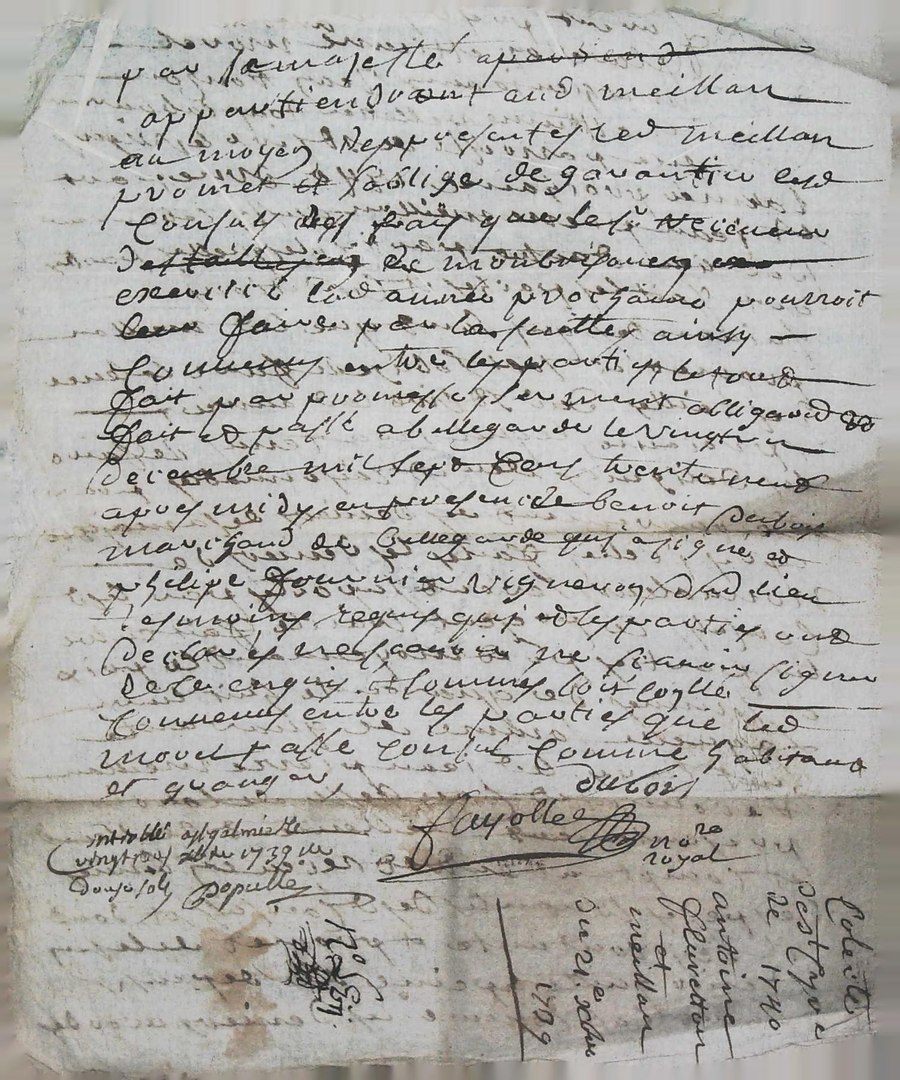 par sa majesté apartiend
appartiendront aud meillan
au moyen des presentes led meillan
promet et soblige de garantir lesd
Consuls des frais que le sr Receveur
des tailles de monbrison en
exercice lad année prochaine pourroit
leur faire par la suitte ainsy
Convenu entre les parties le tout
fait par promesse serment obligaond &
fait et passé a bellegarde le vingt un
decembre mil sept cens trente neuf
apres midy en presence de benoit dubois
marchand de bellegarde qui a signé et
philipe fournier vigneron dud lieu
tesmoins requis qui et les parties ont
declarés ne scavoir signer
de ce enquis et sommés
Convenus entre les parties que led
consul Comme habitant
et
dubois
fayolle
nore
royal
Controllé a st galmier le
vingt trois xbre 1739
douze sols populle
Colecte
de 1740
antoine
et
meillan
du 21 xbre
1739